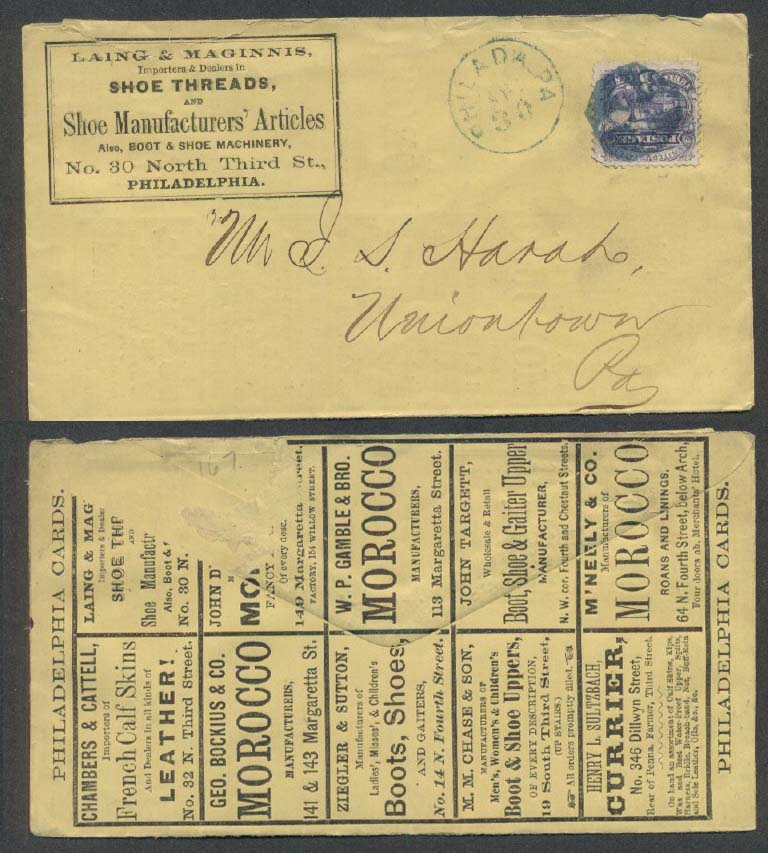 LAING & MAGINNIS,
Importers & Dealers in
SHOE THREADS,
AND
Shoe Manufacturers' Articles
Also, BOOT & SHOE MACHINERY,
No. 30 North Third St.,
PHILADELPHIA.
PHILAD'A. PA
POSTAGE
Mr J. S. Harah,
Uniontown
Pa
167
PHILADELPHIA CARDS.
LAING & MAG
Importers & Dealer
SHOE THR
AND
Shoe Manufactr
Also, Boot &
No. 30 N.
JOHN D
MO
FANCY
Of every desc.
149 Margaretta treet.
FACTORY, 154 WILLOW STREET.
W. P. GAMBLE & BRO.
MOROCCO
MANUFACTURERS,
113 Margaretta Street.
JOHN TARGETT,
Wholesale & Retail
Boot, Shoe & Gaiter Upper
MANUFACTURER,
N. W. cor. Fourth and Chestnut Streets,
M'NEELY & CO.
Manufacturers of
MOROCCO
ROANS AND LININGS,
64 N. Fourth Street, below Arch,
Four doors ab. Merchants' Hotel.
CHAMBERS & CATTELL,
Importers of
French Calf Skins
And Dealers in all kinds of
LEATHER!
No. 32 N. Third Street.
GEO. BOCKIUS & CO.
MOROCCO
MANUFACTURERS,
141 & 143 Margaretta St.
ZIEGLER & SUTTON,
Manufacturers of
Ladies', Misses', & Children's
Boots, Shoes,
AND GAITERS,
No. 14 N. Fourth Street.
M. M. CHASE & SON,
MANUFACTURERS OF
Men's, Women's & Children's
Boot & Shoe Uppers,
OF EVERY DESCRIPTION,
19 South Third Street,
(UP STAIRS.)
All orders promptly filled.
HENRY L. SULTZBACH,
CURRIER,
No. 346 Dillwyn Street,
Rear of Penna. Farmer, Third Street.
On hand an assortment of Calf Skins, Kips,
Wax and Best Water-Proof Upper, Splits,
Harness, Bridle, Breach-band, Net, Buff-Rain
and Sole Leathers, Oils, &c., &c.
PHILADELPHIA CARDS.